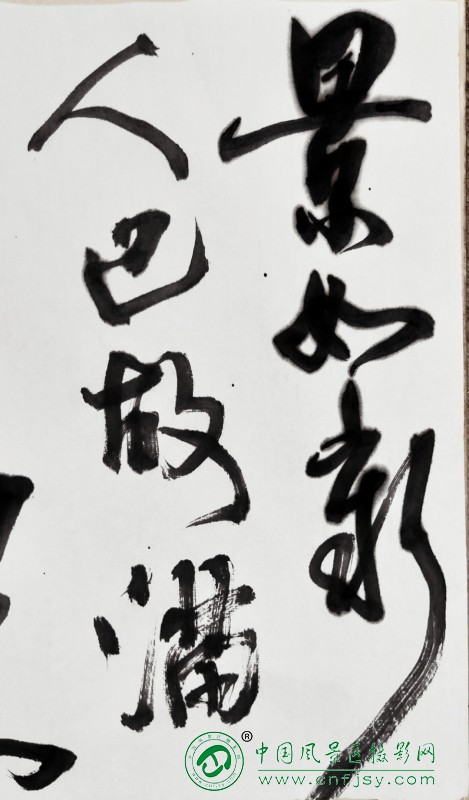 景如新
人已故满
中国风景区摄影网
www.cnfjsy.com